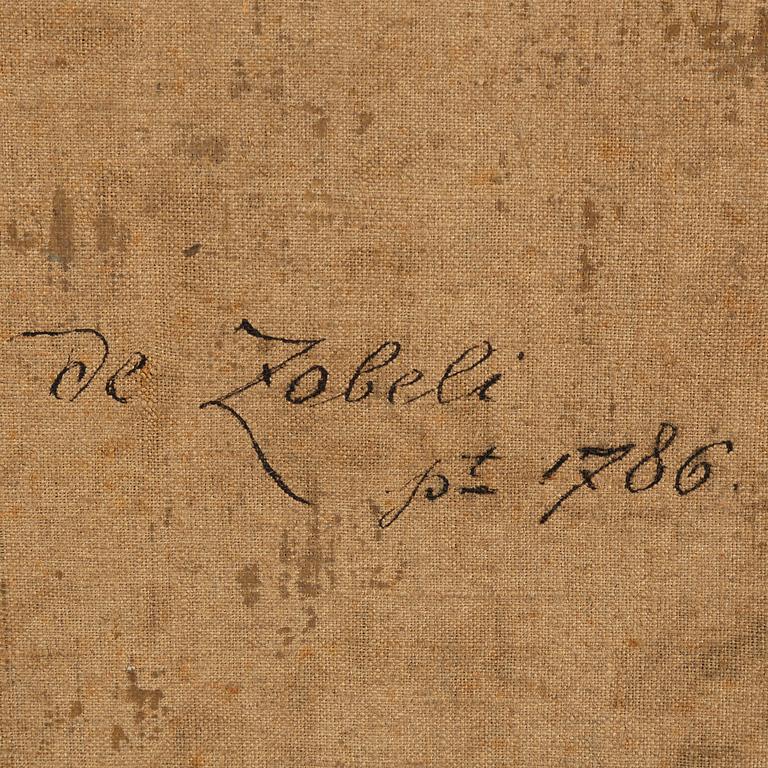 de Zobeli
pt 1786.